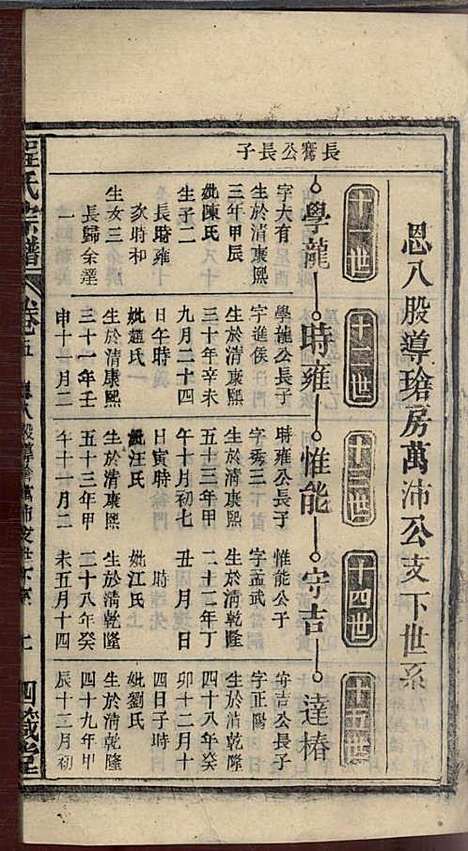 恩八股導瑲房萬沛公支下世系
十一世
十二世
十三世
十四世
十五世
長騫公長子
學龍
時雍
惟能
守吉
達椿
字大有
生於清康熙
三年甲辰
妣陳氏
生子二
長時雍
次時和
生女三
長歸余達
學龍公長子
字進侯
生於清康熙
三十年辛未
九月二十四
日午時
妣趙氏
生於清康熙
三十一年壬
申十一月二
時雍公長子
字秀三
生於清康熙
五十三年甲
午十月初七
日寅時
妣汪氏
生於清康熙
五十三年甲
午十一月二
惟能公子
字孟武
生於清乾隆
二十二年丁
丑月日
妣江氏
生於清乾隆
二十八年癸
未五月十四
守吉公長子
字正陽
生於清乾隆
四十八年癸
卯十二月十
四日子時
妣劉氏
生於清乾隆
四十九年甲
辰十二月初
汪氏宗譜
卷五
四箴堂